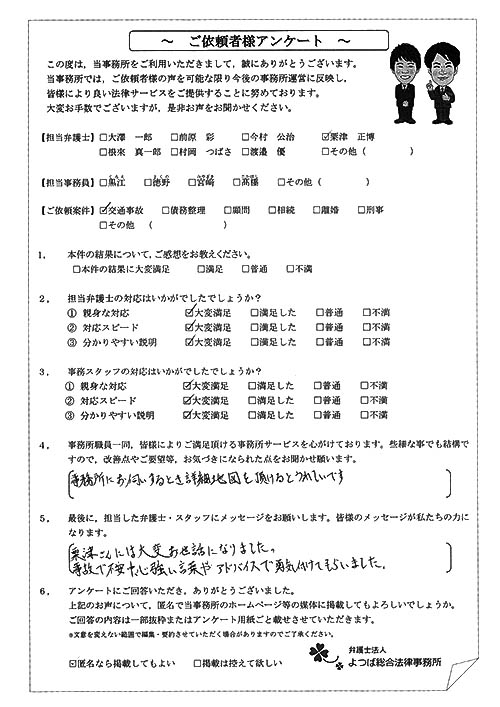 ～　ご依頼者様アンケート　～
この度は，当事務所をご利用いただきまして，誠にありがとうございます。
当事務所では，ご依頼者様の声を可能な限り今後の事務所運営に反映し，
皆様により良い法律サービスをご提供することに努めております。
大変お手数でございますが，是非お声をお聞かせください。
【担当弁護士】□大澤　一郎　□前原　彩　□今村　公治　☑粟津　正博
□根來　真一郎　□村岡　つばさ　□渡邉　優　□その他（　　　）
【担当事務員】□黒江　□徳野　□宮崎　□髙橋　□その他（　　　）
【ご依頼案件】☑交通事故　□債務整理　□顧問　□相続　□離婚　□刑事
□その他（　　　）
1．　本件の結果について，ご感想をお教えください。
□本件の結果に大変満足　□満足　□普通　□不満
2．　担当弁護士の対応はいかがでしたでしょうか？
① 親身な対応　☑大変満足　□満足した　□普通　□不満
② 対応スピード　☑大変満足　□満足した　□普通　□不満
③ 分かりやすい説明　☑大変満足　□満足した　□普通　□不満
3．　事務スタッフの対応はいかがでしたでしょうか？
① 親身な対応　☑大変満足　□満足した　□普通　□不満
② 対応スピード　☑大変満足　□満足した　□普通　□不満
③ 分かりやすい説明　☑大変満足　□満足した　□普通　□不満
4．　事務所職員一同，皆様によりご満足頂ける事務所サービスを心がけております。些細な事でも結構で
すので，改善点やご要望等，お気づきになられた点をお聞かせ願います。
事務所にお伺いするとき詳細地図を頂けるとうれしいです
5．　最後に，担当した弁護士・スタッフにメッセージをお願いします。皆様のメッセージが私たちの力に
なります。
粟津さんには大変お世話になりました。
事故で不安な中心強い言葉やアドバイスで勇気付けてもらいました。
6．　アンケートにご回答いただき，ありがとうございました。
上記のお声について，匿名で当事務所のホームページ等の媒体に掲載してもよろしいでしょうか。
ご回答の内容は一部抜粋またはアンケート用紙ごと載せさせていただきます。
※文意を変えない範囲で編集・要約させていただく場合がありますのでご了承ください。
☑匿名なら掲載してもよい　□掲載は控えて欲しい
弁護士法人
よつば総合法律事務所